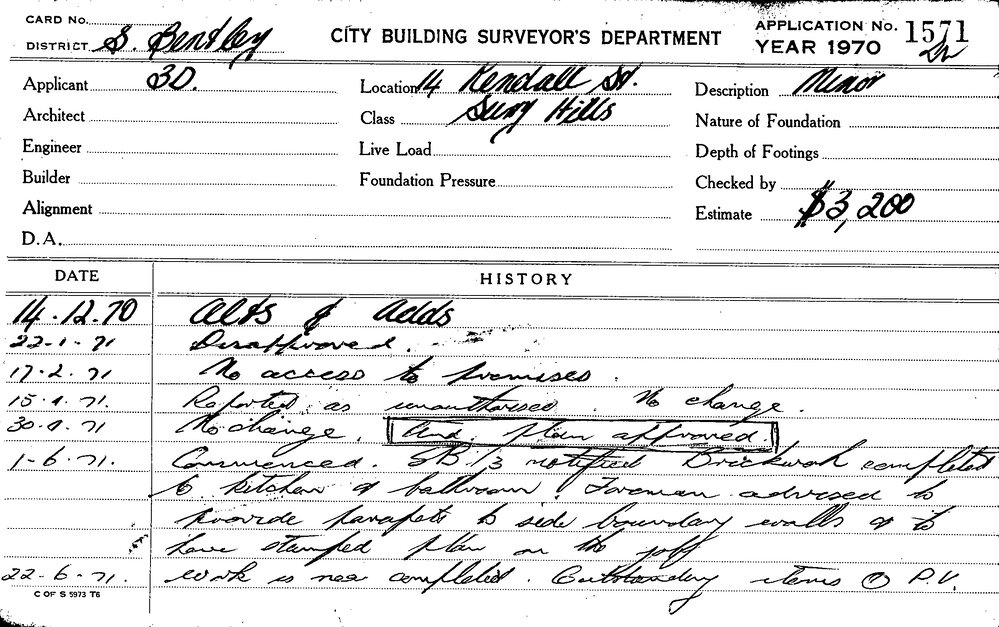 CARD No.
DISTRICT S. Bentley
CITY BUILDING SURVEYOR'S DEPARTMENT
APPLICATION No. 1571
YEAR 1970
Applicant 3D.
Location 14 Kendall St.
Description Minor
Architect
Class Surry Hills
Nature of Foundation
Engineer
Live Load
Depth of Footings
Builder
Foundation Pressure
Checked by
Alignment
Estimate $3,200
D.A.
DATE HISTORY
14.12.70 Alts & Adds
22-1-71 Disapproved.
17.2.71 No access to premises.
15.4.71. Reported as unauthorised. No change.
30.4.71 No change. And. plan approved.
1-6.71. Commenced. SB 1/3 notified Brickwork completed
to kitchen & bathroom. Foreman advised to
provide parapets to side boundary walls & to
have stamped plan on the job
22-6.71. work is near completed. Outstanding items ① P.V.
C OF S 5973 T6